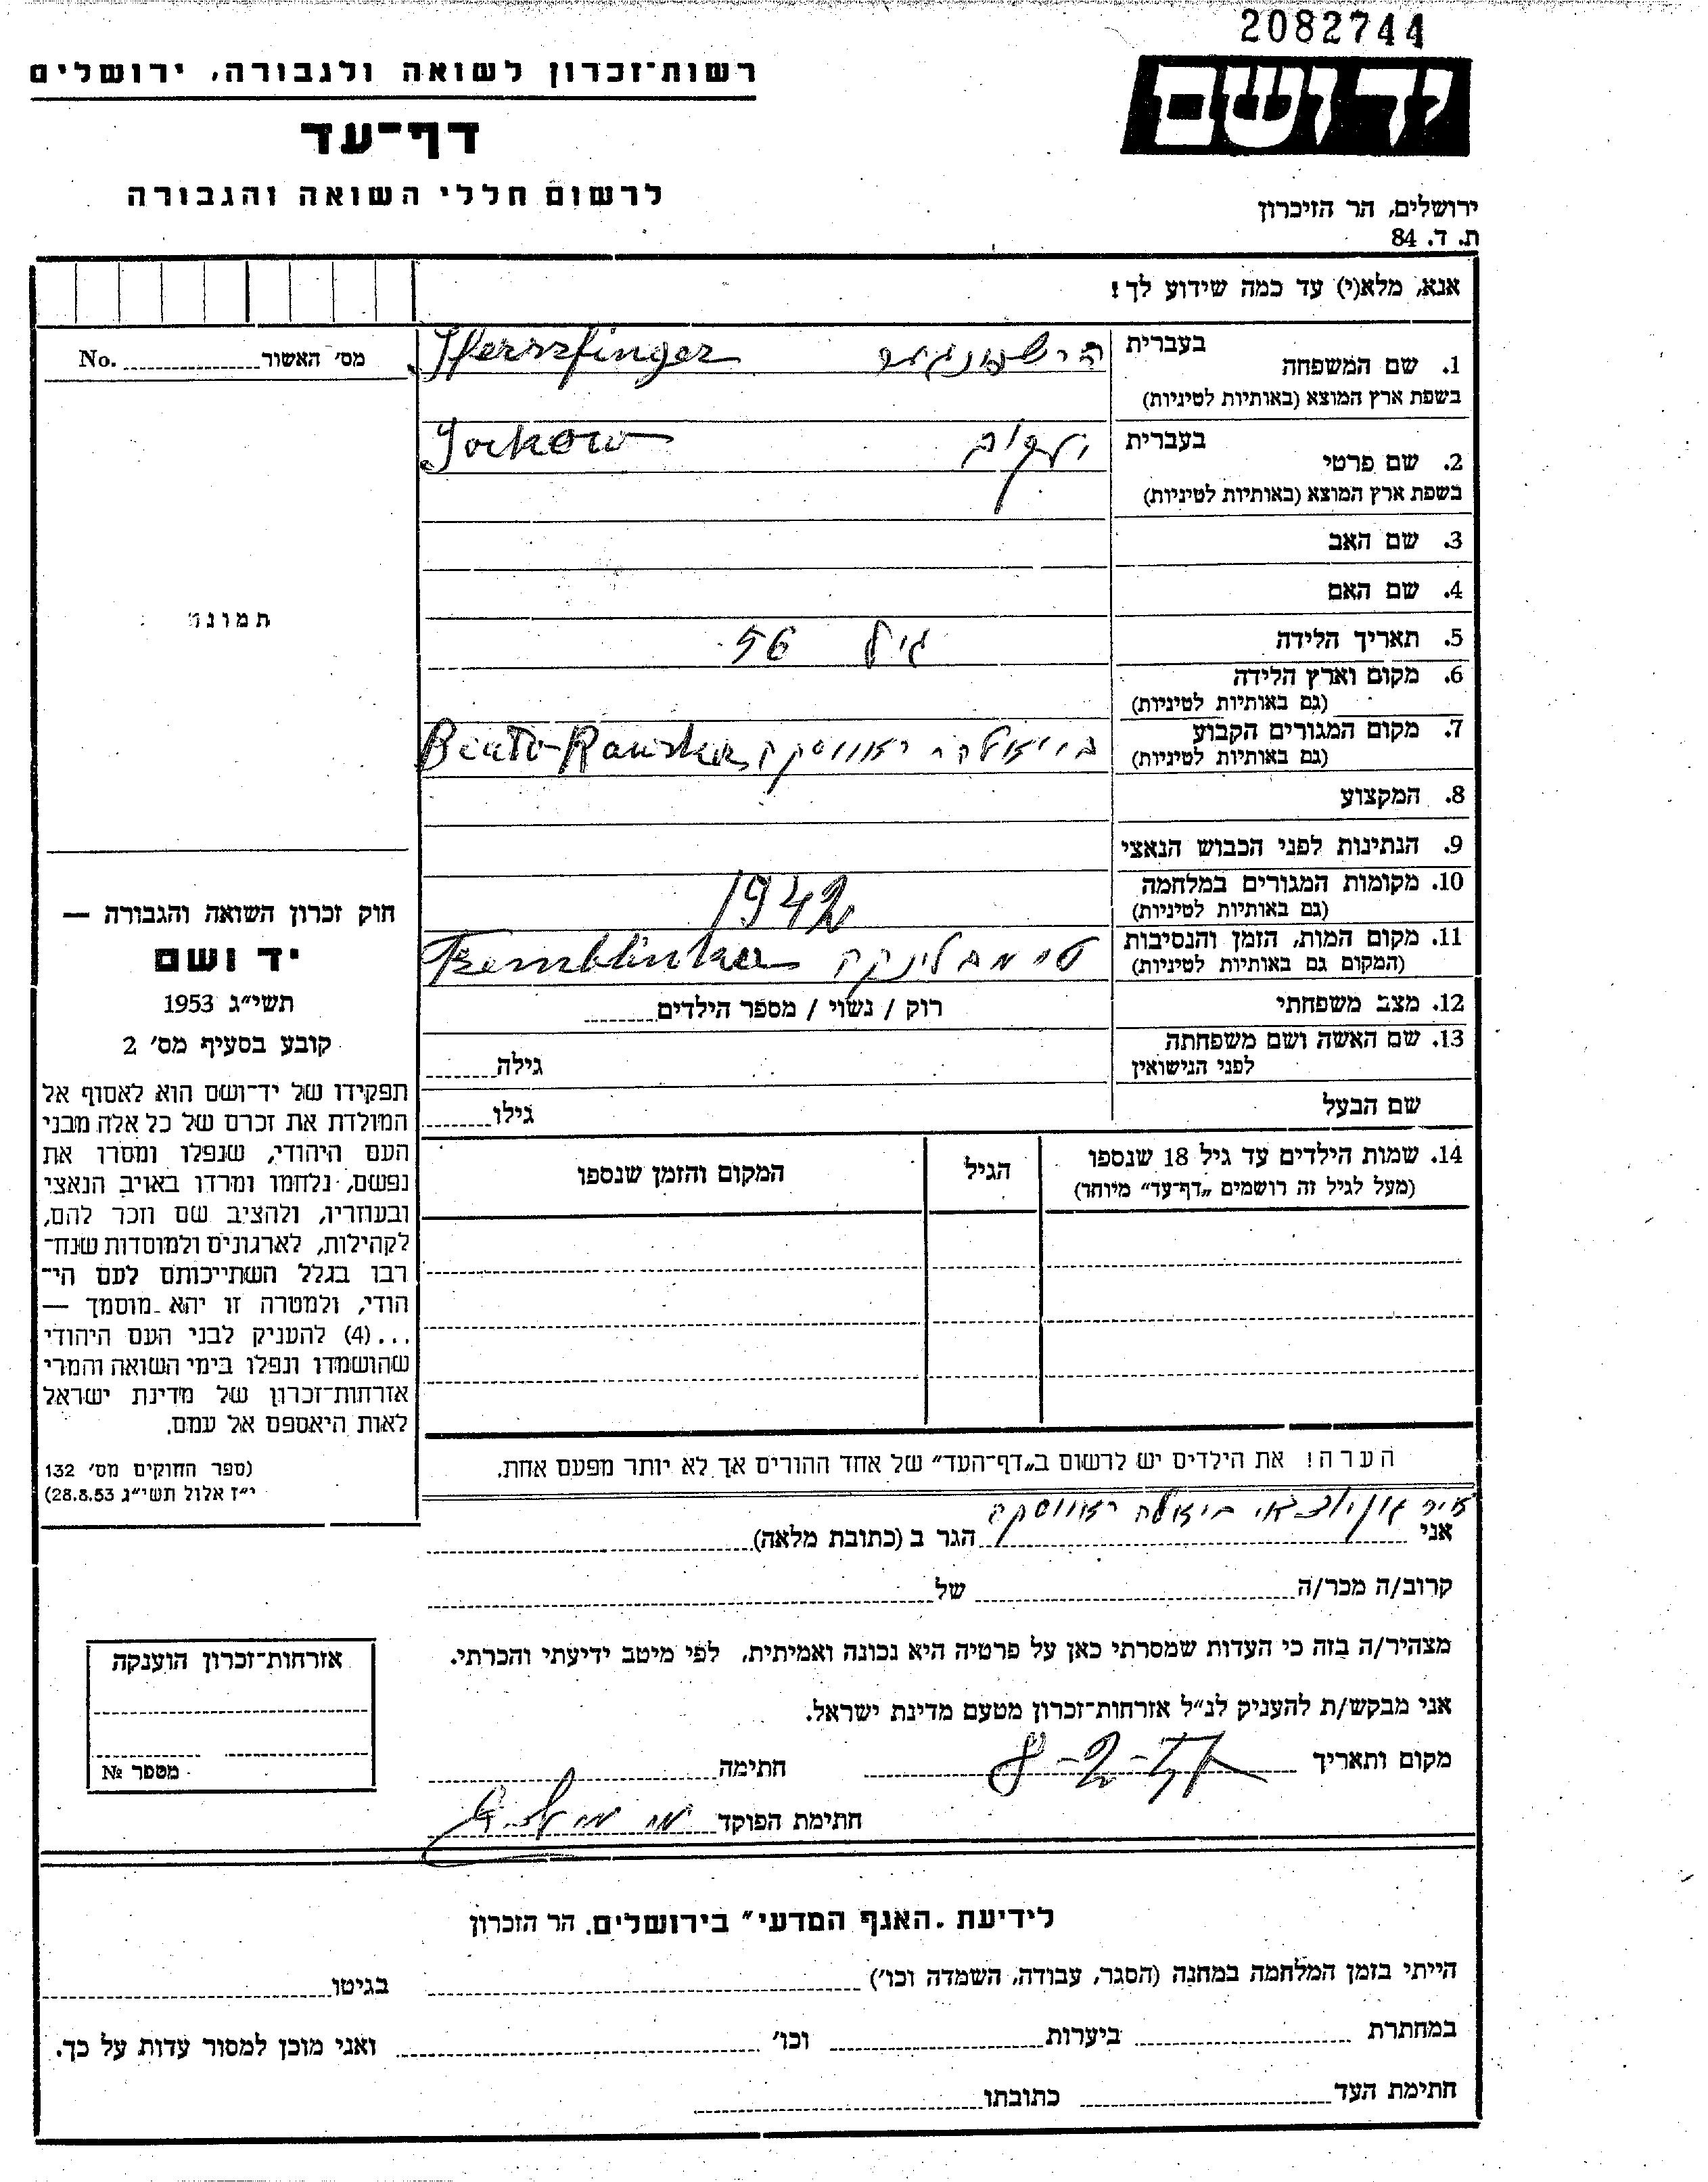 2082744
רשות־זכרון לשואה ולגבורה, ירושלים
יד ושם
דף־עד
לרשום חללי השואה והגבורה
ירושלים, הר הזיכרון
ת. ד. 84
אנא, מלא(י) עד כמה שידוע לך!
מס׳ האשור No.
1. שם המשפחה בעברית
Herszfinger
בשפת ארץ המוצא (באותיות לטיניות)
2. שם פרטי בעברית יעקוב
Jackow
בשפת ארץ המוצא (באותיות לטיניות)
3. שם האב
4. שם האם
תמונה
5. תאריך הלידה גיל 56
6. מקום וארץ הלידה
(גם באותיות לטיניות)
7. מקום המגורים הקבוע ראווסקה
(גם באותיות לטיניות)
8. המקצוע
9. הנתינות לפני הכבוש הנאצי
10. מקומות המגורים במלחמה 1942
(גם באותיות לטיניות)
11. מקום המות, הזמן והנסיבות
(המקום גם באותיות לטיניות)
12. מצב משפחתי רוק / נשוי / מספר הילדים
13. שם האשה ושם משפחתה
לפני הנישואין גילה
שם הבעל גילו
14. שמות הילדים עד גיל 18 שנספו הגיל המקום והזמן שנספו
(מעל לגיל זה רושמים „דף־עד” מיוחד)
חוק זכרון השואה והגבורה —
יד ושם
תשי״ג 1953
קובע בסעיף מס׳ 2
תפקידו של יד־ושם הוא לאסוף אל
המולדת את זכרם של כל אלה מבני
העם היהודי, שנפלו ומסרו את
נפשם, נלחמו ומרדו באויב הנאצי
ובעוזריו, ולהציב שם וזכר להם,
לקהילות, לארגונים ולמוסדות שנח־
רבו בגלל השתייכותם לעם הי־
הודי, ולמטרה זו יהא מוסמך —
...(4) להעניק לבני העם היהודי
שהושמדו ונפלו בימי השואה והמרי
אזרחות־זכרון של מדינת ישראל
לאות היאספם אל עמם.
(ספר החוקים מס׳ 132
י״ז אלול תשי״ג 28.8.53)
הערה! את הילדים יש לרשום ב„דף־העד” של אחד ההורים אך לא יותר מפעם אחת.
ראווסקה
אני הגר ב (כתובת מלאה)
קרוב/ה מכר/ה של
מצהיר/ה בזה כי העדות שמסרתי כאן על פרטיה היא נכונה ואמיתית, לפי מיטב ידיעתי והכרתי.
אני מבקש/ת להעניק לנ״ל אזרחות־זכרון מטעם מדינת ישראל.
מקום ותאריך חתימה
חתימת הפוקד
אזרחות־זכרון הוענקה
מספר №
לידיעת „האגף המדעי” בירושלים, הר הזכרון
הייתי בזמן המלחמה במחנה (הסגר, עבודה, השמדה וכו׳) בגיטו
במחתרת ביערות וכו׳ ואני מוכן למסור עדות על כך.
חתימת העד כתובתו